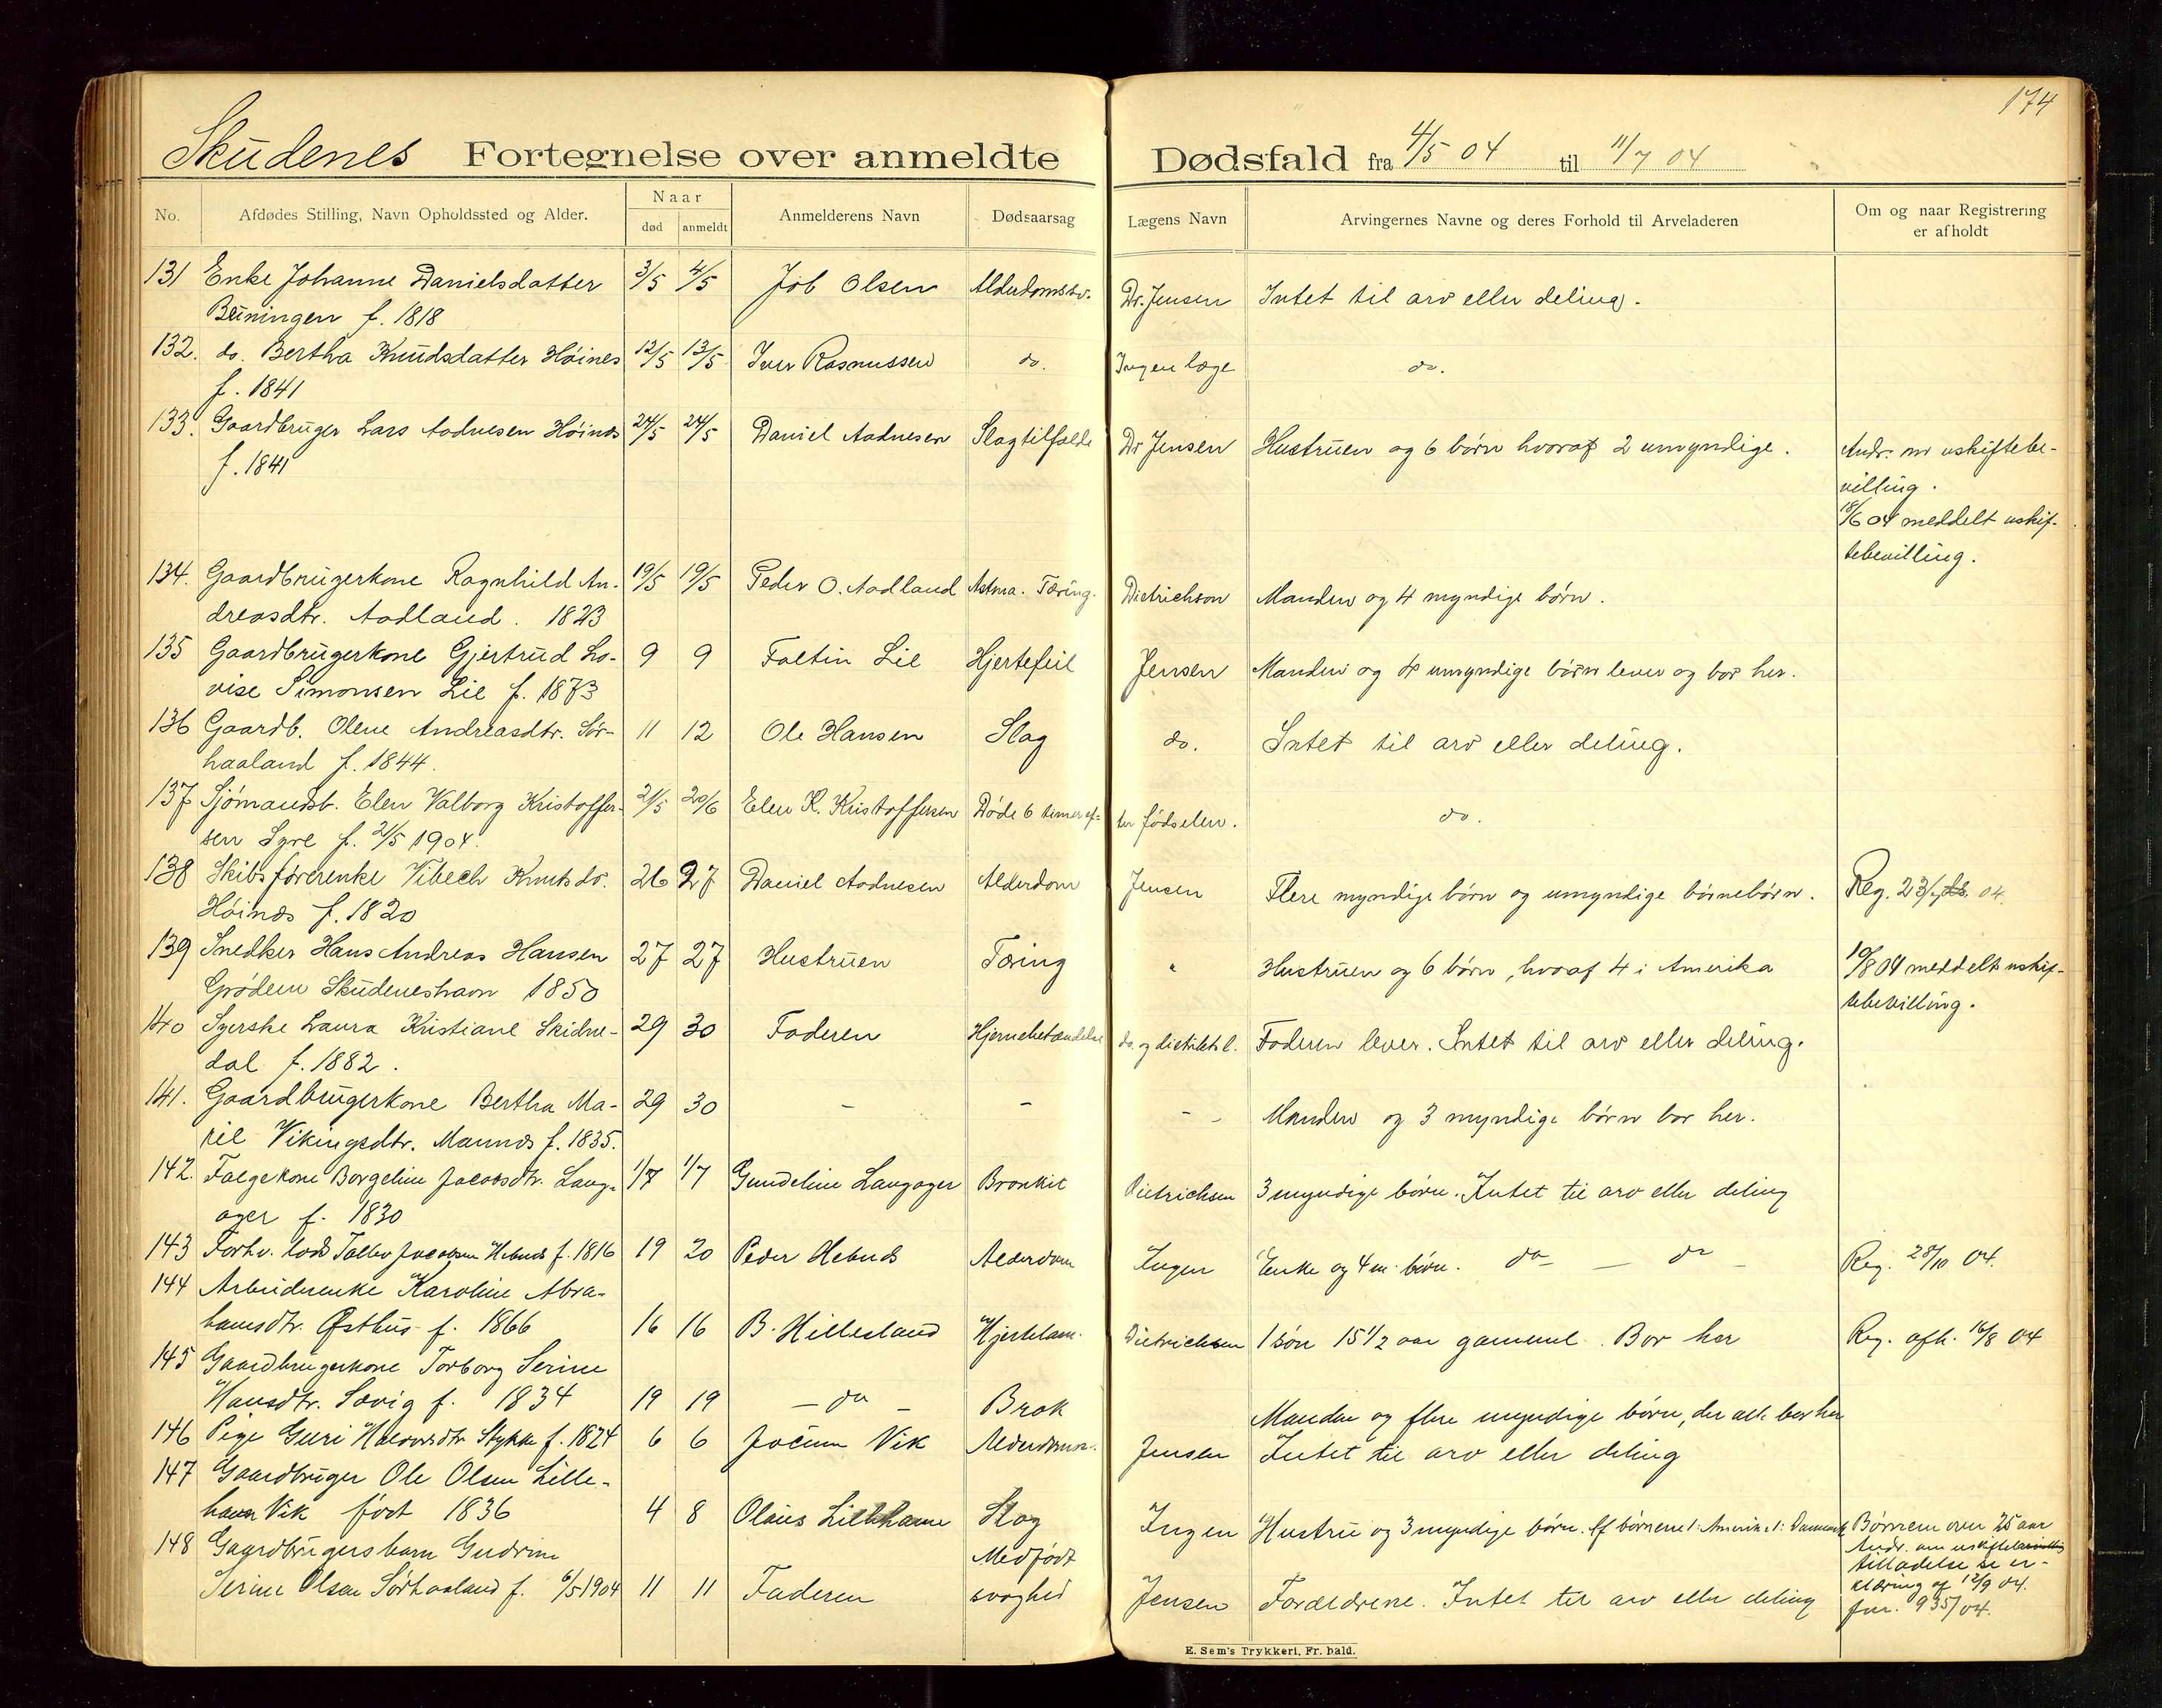 174
Skudenes Fortegnelse over anmeldte Dødsfald fra 4/5 04 til 11/7 04
No. Afdødes Stilling, Navn Opholdssted og Alder. Naar død anmeldt Anmelderens Navn Dødsaarsag Lægens Navn Arvingernes Navne og deres Forhold til Arveladeren Om og naar Registrering er afholdt
131 Enke Johanne Danielsdatter 3/5 4/5 Job Olsen Alderdomssv. Dr. Jensen Intet til arv eller deling.
Beiningen f. 1818
132. do. Bertha Knudsdatter Høines 12/5 13/5 Iver Rasmussen do. Ingen læge do.
f. 1841
133. Gaardbruger Lars Aadnesen Høinæs 24/5 24/5 Daniel Aadnesen Slagtilfælde Dr Jensen Hustruen og 6 børn hvoraf 2 umyndige. Andr. om uskiftebe-
f. 1841 villing.
18/6 04 meddelt uskif-
tebevilling.
134. Gaardbrugerkone Ragnhild An- 19/5 19/5 Peder O. Aadland Astma. Tæring. Dietrichson Manden og 4 myndige børn.
dreasdtr. Aadland. 1823
135 Gaardbrugerkone Gjertrud Lo- 9 9 Faltin Lie Hjertefeil Jensen Manden og 4 umyndige børn lever og bor her.
vise Simonsen Lie f. 1873
136 Gaardb. Olene Andreasdtr. Sør- 11 12 Ole Hansen Slag do. Intet til arv eller deling.
haaland f. 1844.
137 Sjømandsb. Elen Valborg Kristoffer- 21/5 20/6 Elen K. Kristoffersen Døde 6 timer ef- ter fødselen. do.
sen Syre f. 21/5 1904.
138 Skibsførerenke Vibech Knutsdr. 26 27 Daniel Aadnesen Alderdom Jensen Flere myndige børn og umyndige børnebørn. Reg. 23/7 04.
Høinæs f. 1820
139 Snedker Hans Andreas Hansen 27 27 Hustruen Tæring " Hustruen og 6 børn, hvoraf 4 i Amerika 10/8 04 meddelt uskif-
Grødem Skudeneshavn 1850 tebevilling.
140 Syerske Laura Kristiane Skidne- 29 30 Faderen Hjernebetændelse do. og distriktsl. Faderen lever. Intet til arv eller deling.
dal f. 1882.
141. Gaardbrugerkone Bertha Ma- 29 30 - - - - Manden og 3 myndige børn bor her.
ril Vikingsdtr. Mannæs f. 1835.
142. Folgekone Borgeline Jacobsdtr. Lang- 1/7 1/7 Gundeline Langager Bronkit Dietrichsen 3 myndige børn. Intet til arv eller deling
ager f. 1830
143 Forhv. lods Tollev Jacobsen Hebnæs f. 1816 19 20 Peder Hebnæs Alderdom Ingen Enke og 4 m. børn. do — do — Reg. 28/10 04.
144 Arbeiderenke Karoline Abra-
hamsdtr. Østhus f. 1866 16 16 B. Hillesland Hjertelam. Dietrichsen 1 søn 15 1/2 aar gammel. Bor her Reg. afh. 16/8 04
145 Gaardbrugerkone Torborg Serine
Hansdtr. Sævig f. 1834 19 19 — do — Brok Manden og flere myndige børn, der alle bor her
146 Pige Guri Halvorsdtr Stykke f. 1824 6 6 Jocum Vik Alderdomssv. Jensen Intet til arv eller deling
147 Gaardbruger Ole Olsen Lille-
havn Vik født 1836 4 8 Olaus Lillehavn Slag Ingen Hustru og 3 myndige børn. Af børnene 1 i Amerika 1 i Danmark Børnene over 25 aar
148 Gaardbrugersbarn Gudrine Medfødt Andr. om uskiftebevilling
tilladelse se er-
Serine Olsen Sørhaaland f. 6/5 1904 11 11 Faderen svaghed Jensen Forældrene. Intet til arv eller deling klæring af 12/9 04.
jnr. 935/04.
E. Sem's Trykkeri, Fr. hald.